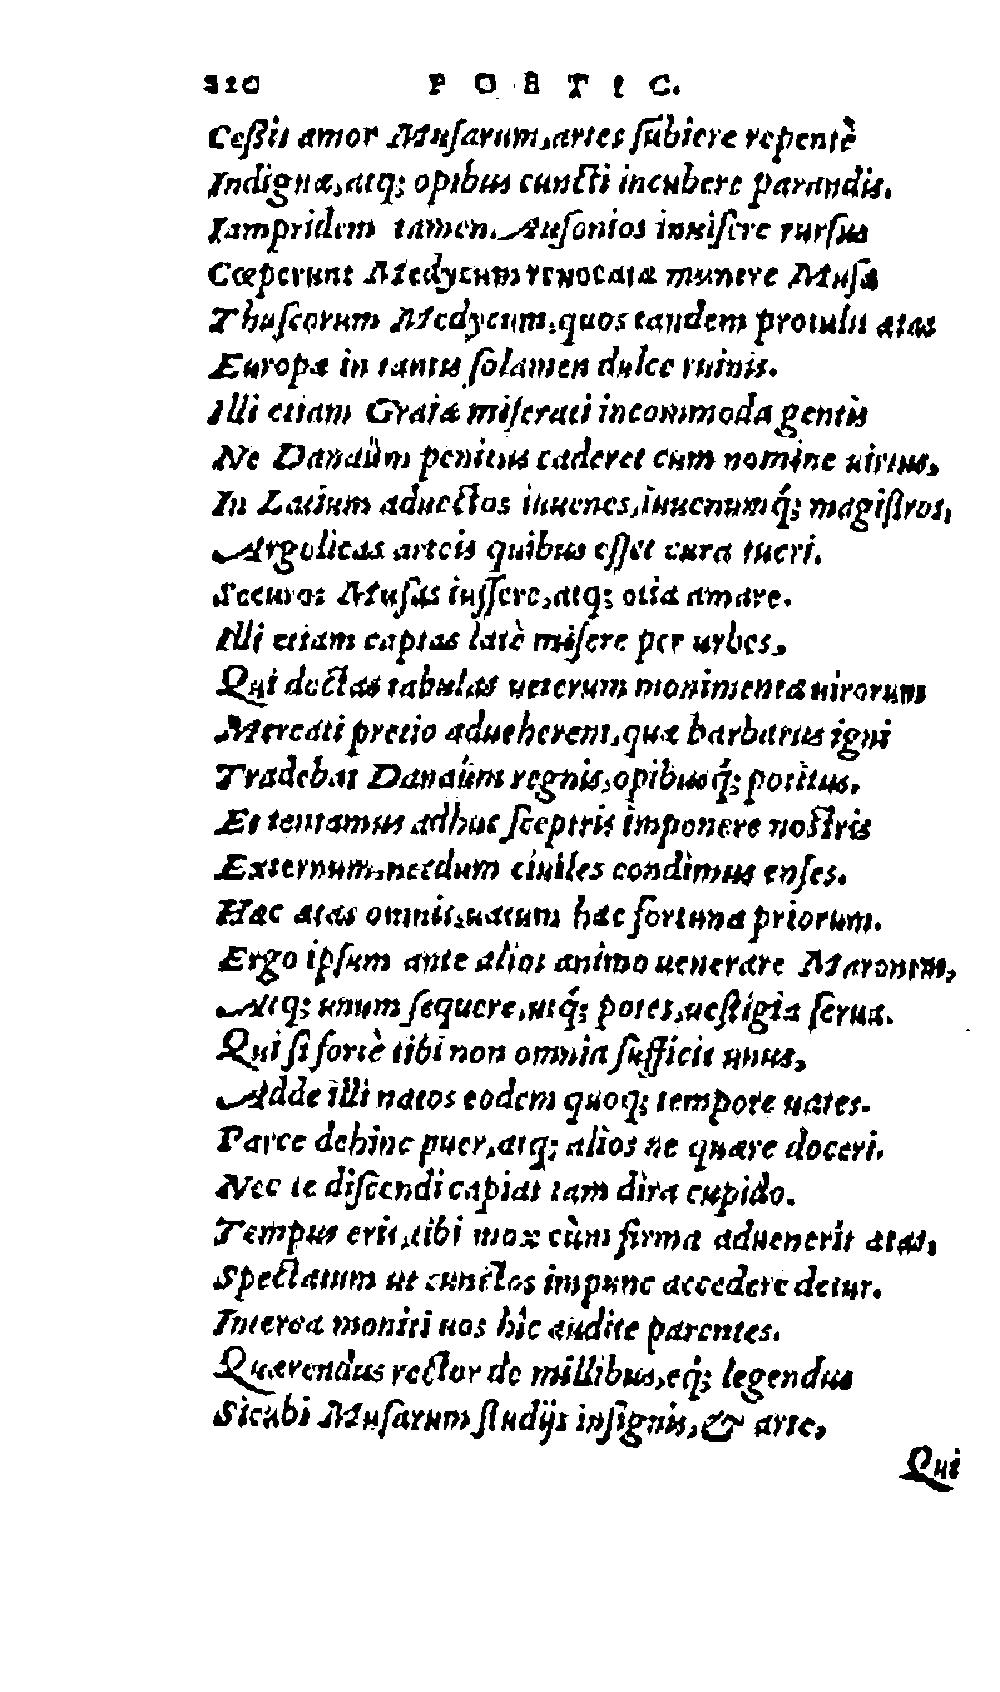 210 POETIC.
Ceßit amor Muſarum, artes ſubiere repentè
Indignæ, atq; opibus cuncti incubere parandis.
Iampridem tamen Auſonios inuiſere rurſus
Cœperunt Medycum reuocata munere Muſæ
Thuſcorum Medycum, quos tandem protulit ætas
Europæ in tantis ſolamen dulce ruinis.
Illi etiam Graiæ miſerati incommoda gentis
Ne Danaûm penitus caderet cum nomine uirtus,
In Latium aduectos iuuenes, iuuenumq́; magiſtros,
Argolicas arteis quibus eſſet cura tueri,
Securos Muſas iuſſere, atq; otia amare.
Illi etiam captas latè misere per urbes,
Qui doctas tabulas ueterum monimenta uirorum
Mercati pretio adueherent, quæ barbarus igni
Tradebat Danaûm regnis, opibusq́; potitus.
Et tentamus adhuc ſceptris imponere noſtris
Externum, necdum ciuiles condimus enſes.
Hæc ætas omnis, uatum hæc fortuna priorum.
Ergo ipſum ante alios animo uenerare Maronem,
Atq; unum ſequere, utq́; potes, ueſtigia ſerua.
Qui ſi fortè tibi non omnia ſufficit unus,
Adde illi natos eodem quoq; tempore uates.
Parce dehinc puer, atq; alios ne quære doceri.
Nec te diſcendi capiat tam dira cupido.
Tempus erit, tibi mox cùm firma aduenerit ætas,
Spectatum ut cunctos impune accedere detur.
Interea moniti uos hîc audite parentes.
Quærendus rector de millibus, eq́; legendus
Sicubi Muſarum ſtudijs inſignis, & arte,
Qui